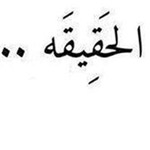 الحَقِيقَه ..